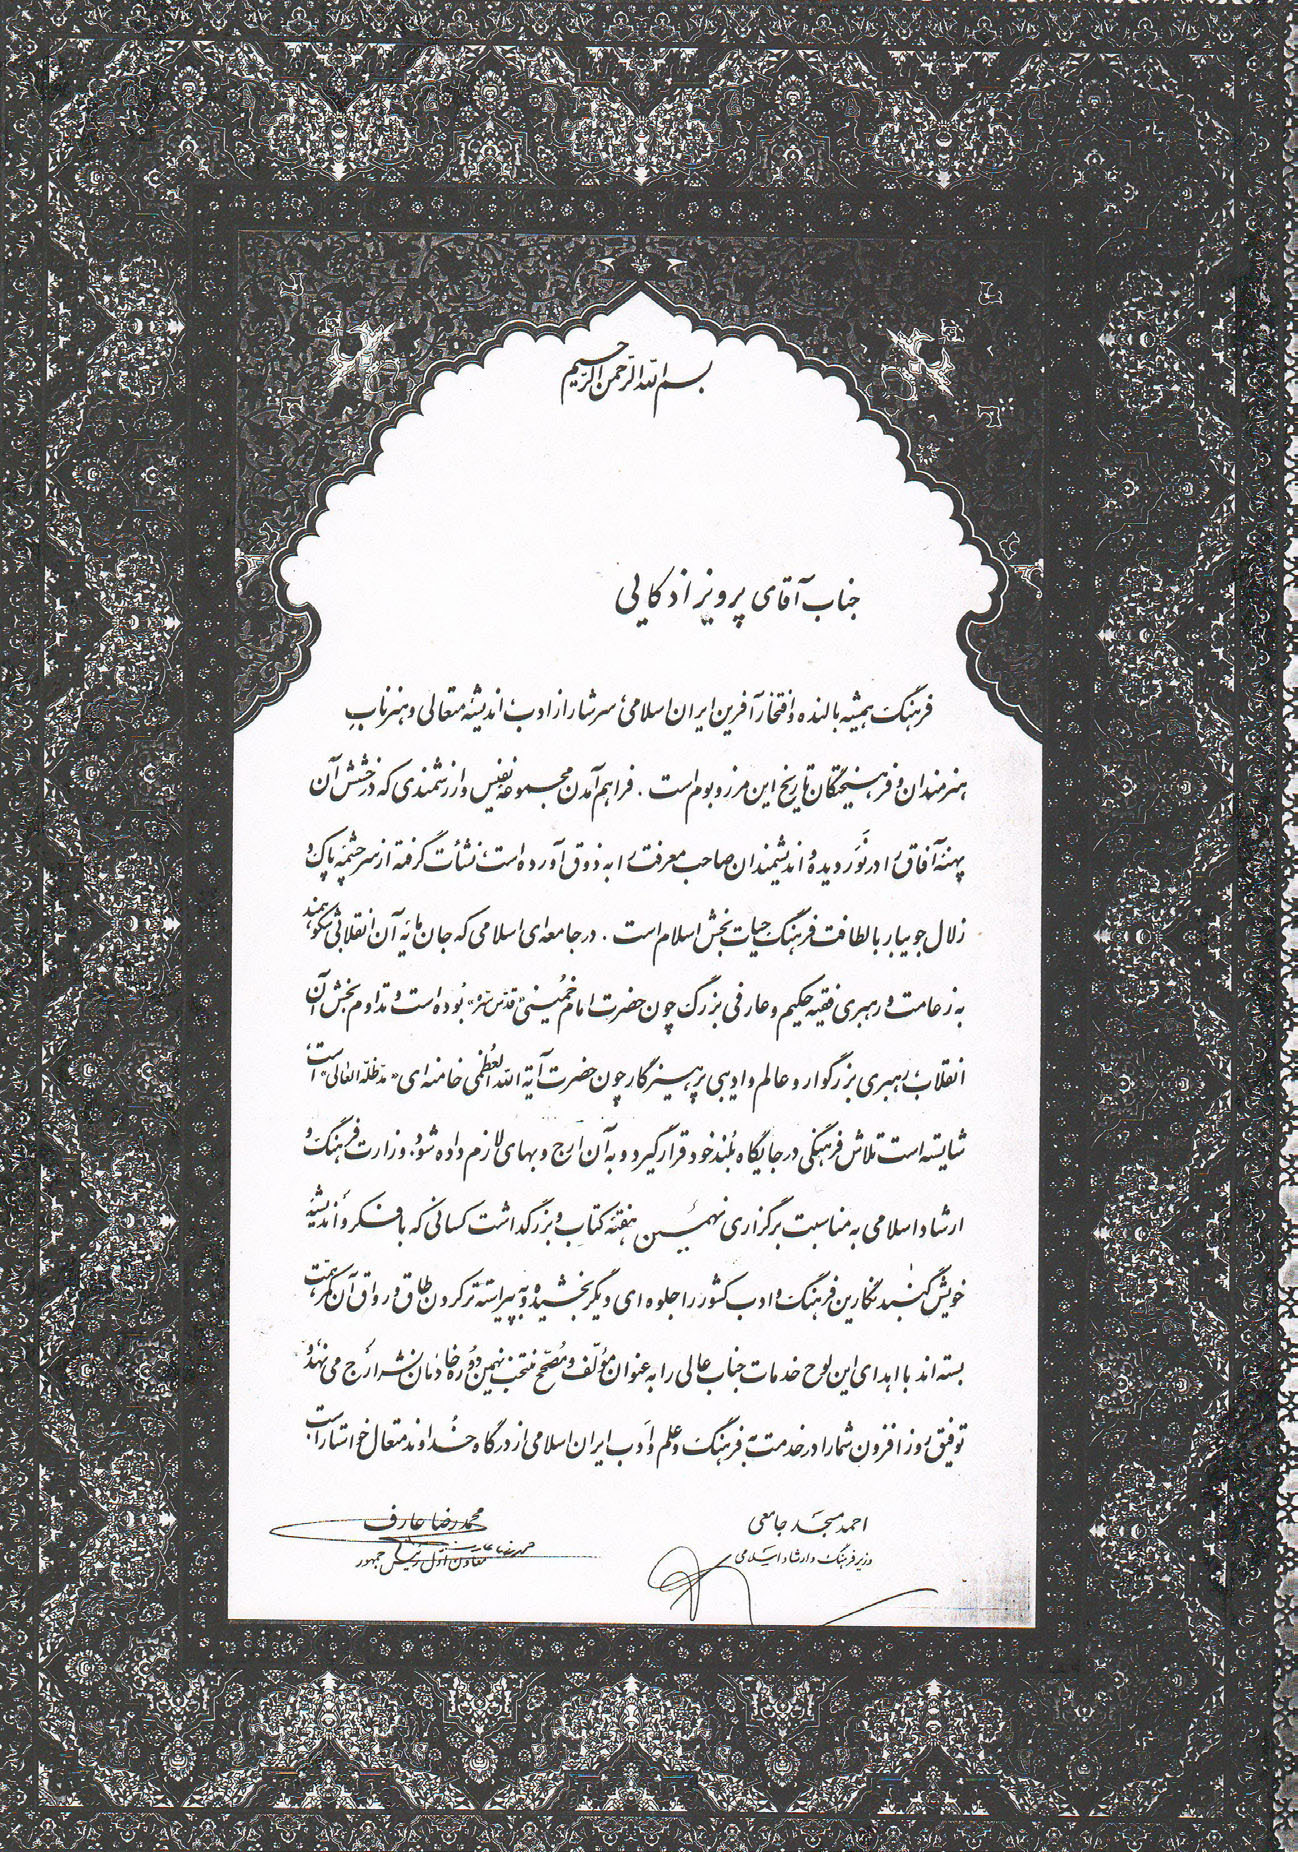 بسم الله الرحمن الرحیم
جناب آقای پرویز اذکایی
فرهنگ همیشه بالنده و افتخارآفرین ایران اسلامی سرشار از ادب، اندیشهٔ متعالی و هنر ناب
هنرمندان و فرهیختگان تاریخ این مرز و بوم است . فراهم آمدن مجموعهٔ نفیس و ارزشمندی که درخشش آن
پهنهٔ آفاق را درنَوَردیده و اندیشمندان صاحب معرفت را به ذوق آورده است، نشأت گرفته از سرچشمهٔ پاک و
زلال جویبار با لطافت فرهنگ حیات بخش اسلام است . در جامعه ای اسلامی که جان مایهٔ آن انقلابی شکوهمند
به زعامت و رهبری فقیه حکیم و عارفی بزرگ چون حضرت امام خمینی «قدّس سرّه» بوده است و تداوم بخش آن
انقلاب، رهبری بزرگوار و عالم و ادیبی پرهیزگار چون حضرت آیة الله العُظمی خامنه ای «مدّ ظلّه العالی» است،
شایسته است تلاش فرهنگی در جایگاه بلند خود قرار گیرد و به آن ارج و بهای لازم داده شود. وزارت فرهنگ و
ارشاد اسلامی به مناسبت برگزاری نهمین هفتهٔ کتاب و بزرگداشت کسانی که با فکر و اندیشهٔ
خویش گنبد نگارین فرهنگ و ادب کشور را جلوه ای دیگر بخشیده و به پیراسته تر کردن طاق و رواق آن کمر همّت
بسته اند با اهدای این لوح خدمات جناب عالی را به عنوان مؤلّف و مُصحّح منتخب نهمین دورهٔ خادمان نشر ارج می نهد و
توفیق روز افزون شما را در خدمت به فرهنگ و علم و ادب ایران اسلامی از درگاه خداوند متعال خواستار است
احمد مسجد جامعی
وزیر فرهنگ و ارشاد اسلامی
محمدرضا عارف
معاون اوّل رئیس جمهور